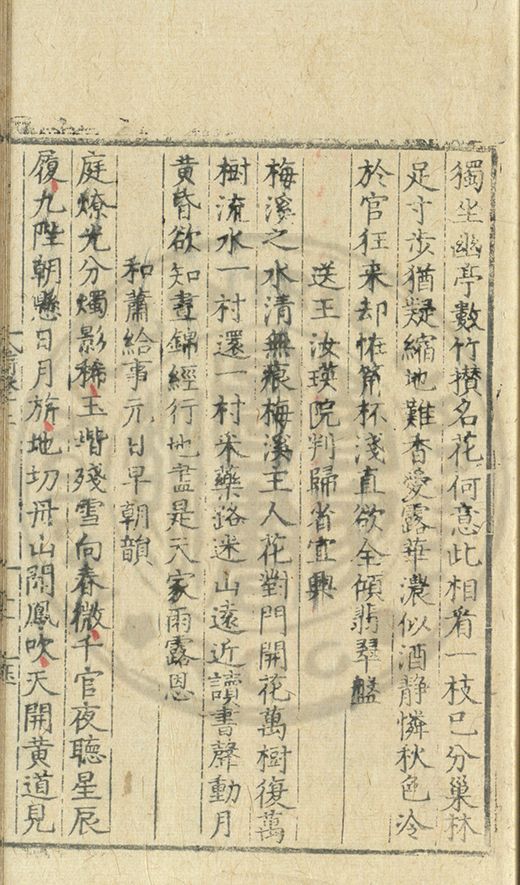 獨坐幽亭數竹攅名花何意此相看一枝已分巢林
足寸步猶疑縮地難香愛露華濃似酒静憐秋色冷
於官狂来却恠觴杯淺直欲全傾翡翠盤
送王汝瑛院判歸省宜興
梅溪之水清無痕梅溪王人花對門開花萬樹復萬
樹流水一村還一村米藥路迷山遠近讀書聲動月
黄昏欲知晝錦經行地盡是天家雨露恩
和蕭給事元日早朝韻
庭燎光分燭影稀玉堦殘雪向春微千官夜聽星辰
履九陛朝懸日月旂地切丹山聞鳳吹天開黄道見